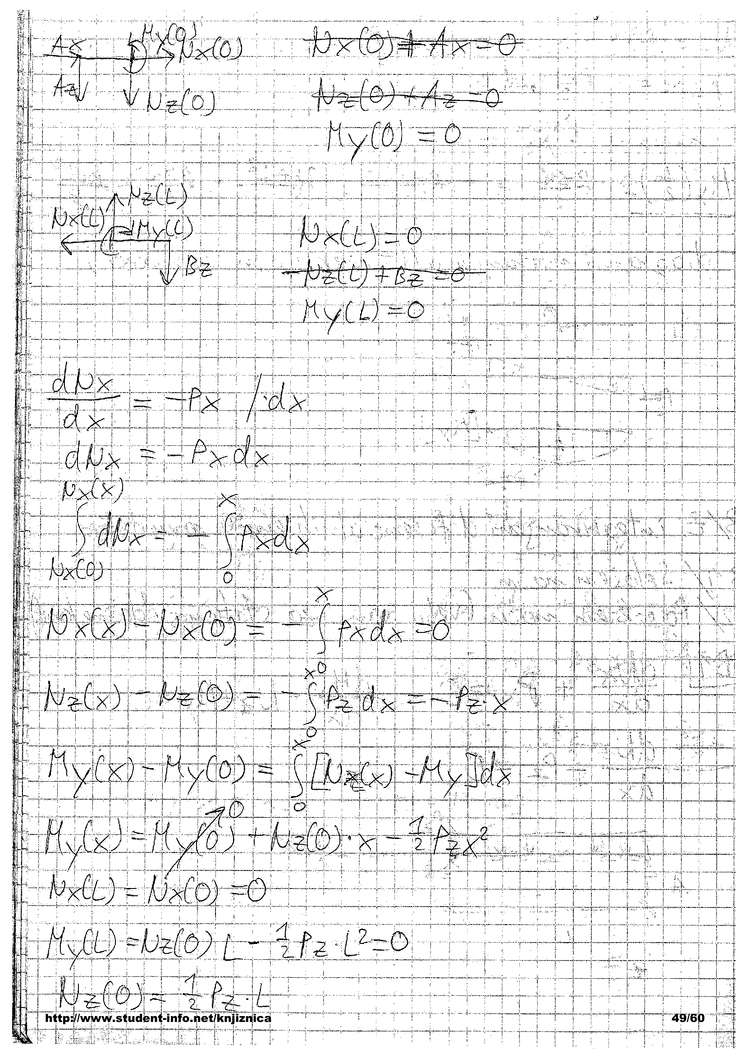 Ax My(0) Nx(0) Nx(0) + Ax = 0
Az Nz(0) Nz(0) + Az = 0
My(0) = 0
Nz(L)
Nx(L) My(L) Nx(L) = 0
Bz Nz(L) + Bz = 0
My(L) = 0
dNx/dx = -Px /·dx
dNx = -Px dx
∫_{Nx(0)}^{Nx(x)} dNx = - ∫_0^x Px dx
Nx(x) - Nx(0) = - ∫_0^x Px dx = 0
Nz(x) - Nz(0) = - ∫_0^x Pz dx = -Pz·x
My(x) - My(0) = ∫_0^x [Nz(x) - My] dx
My(x) = My(0) → 0 + Nz(0)·x - 1/2 Pz x²
Nx(L) = Nx(0) = 0
My(L) = Nz(0) L - 1/2 Pz·L² = 0
Nz(0) = 1/2 Pz·L
http://www.student-info.net/knjiznica 49/60